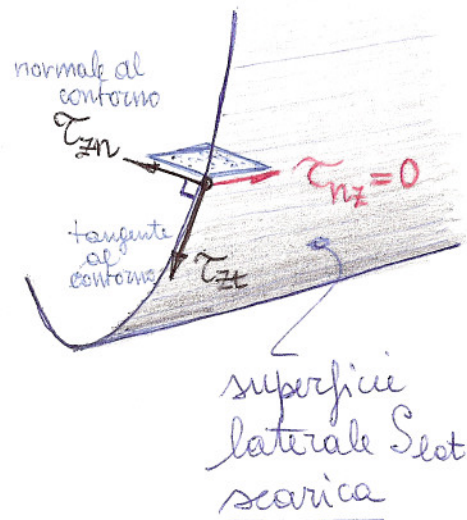 normale al
contorno
τzn
τnz = 0
tangente
al
contorno
τzt
superficie
laterale Slat
scarica